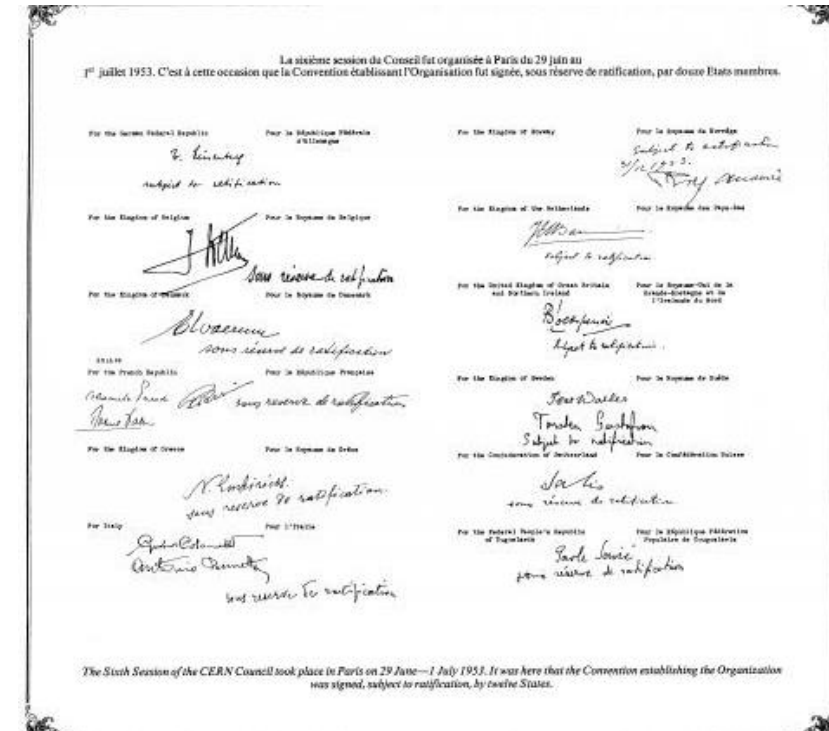 La sixième session du Conseil fut organisée à Paris du 29 juin au
1er juillet 1953. C'est à cette occasion que la Convention établissant l'Organisation fut signée, sous réserve de ratification, par douze Etats membres.
For the German Federal Republic
Pour la République Fédérale
d'Allemagne
subject to ratification
For the Kingdom of Belgium
Pour le Royaume de Belgique
sous réserve de ratification
For the Kingdom of Denmark
Pour le Royaume de Danemark
sous réserve de ratification
For the French Republic
Pour la République Française
sous reserve de ratification
For the Kingdom of Greece
Pour le Royaume de Grèce
sous reserve de ratification
For Italy
Pour l'Italie
Antonio
sous reserve de ratification
For the Kingdom of Norway
Pour le Royaume de Norvège
Subject to ratification
For the Kingdom of the Netherlands
Pour le Royaume des Pays-Bas
subject to ratification
For the United Kingdom of Great Britain
and Northern Ireland
Pour le Royaume-Uni de la
Grande-Bretagne et de
l'Irelande du Nord
subject to ratification.
For the Kingdom of Sweden
Pour le Royaume de Suède
Torsten Gustafson
Subject to ratification
For the Confederation of Switzerland
Pour la Confédération Suisse
sous réserve de ratification
For the Federal People's Republic
of Yugoslavia
Pour la République Fédérative
Populaire de Yougoslavie
Pavle Savić
sous réserve de ratification
The Sixth Session of the CERN Council took place in Paris on 29 June—1 July 1953. It was here that the Convention establishing the Organization
was signed, subject to ratification, by twelve States.